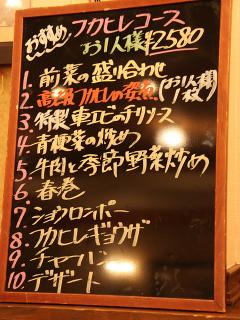 おすすめ フカヒレコース
お1人様¥2580
1. 前菜の盛り合わせ
2. 高級フカヒレの姿煮(お1人様1枚)
3. 特製車エビのチリソース
4. 青梗菜の炒め
5. 牛肉と季節野菜炒め
6. 春巻
7. ショウロンポー
8. フカヒレギョウザ
9. チャーハン
10. デザート